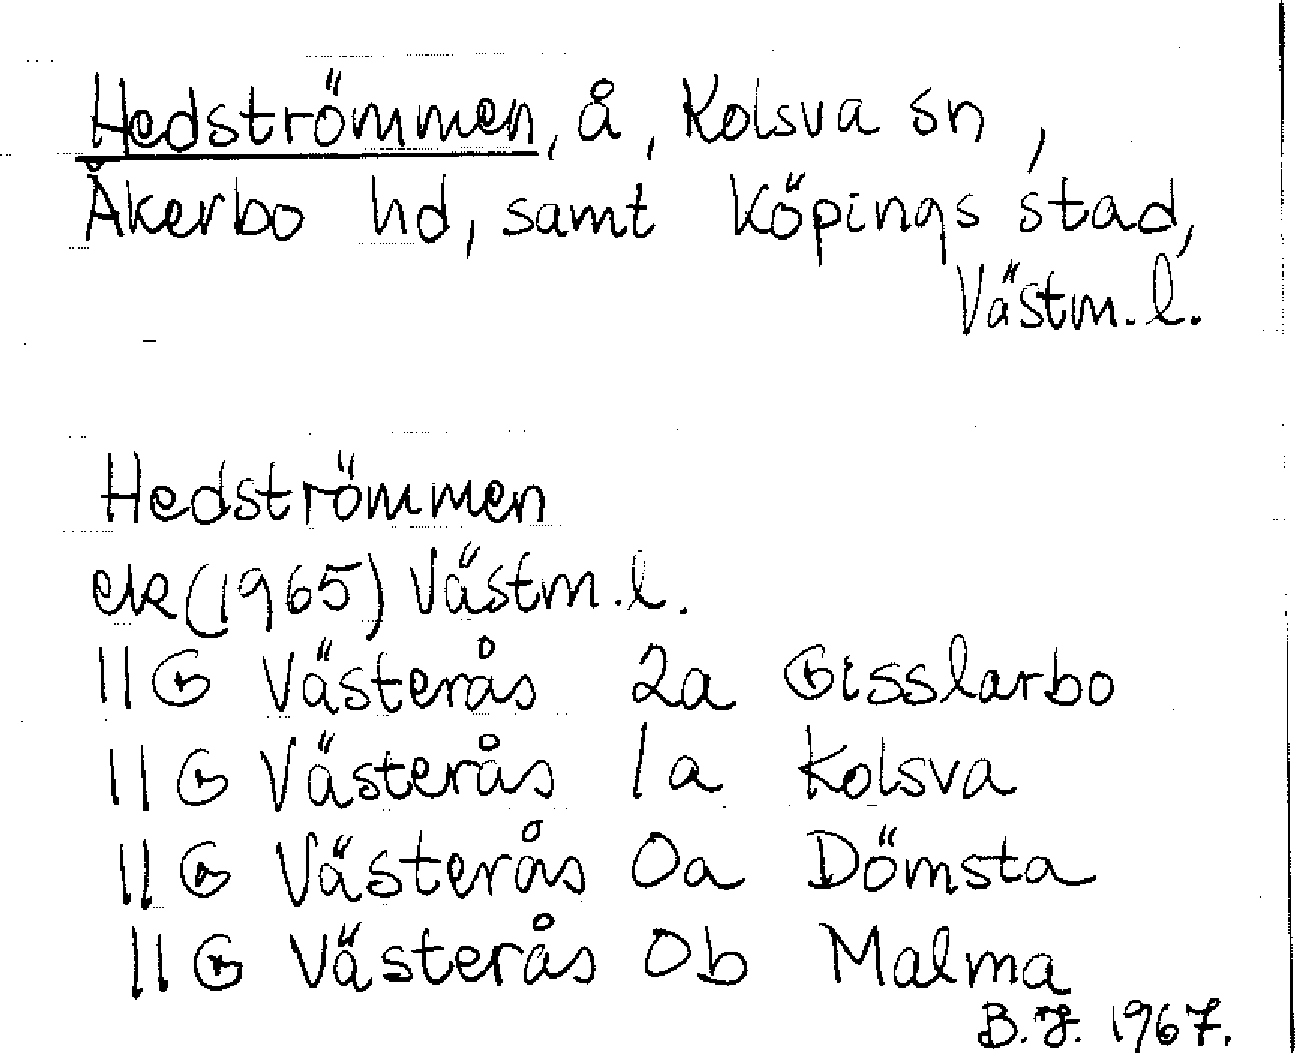 Hedströmmen, å, Kolsva sn,
Åkerbo hd, samt Köpings stad,
Västm. l.
Hedströmmen
ek (1965) Västm. l.
11G Västerås 2a Gisslarbo
11G Västerås 1a Kolsva
11G Västerås 0a Dömsta
11G Västerås 0b Malma
B.J. 1967.